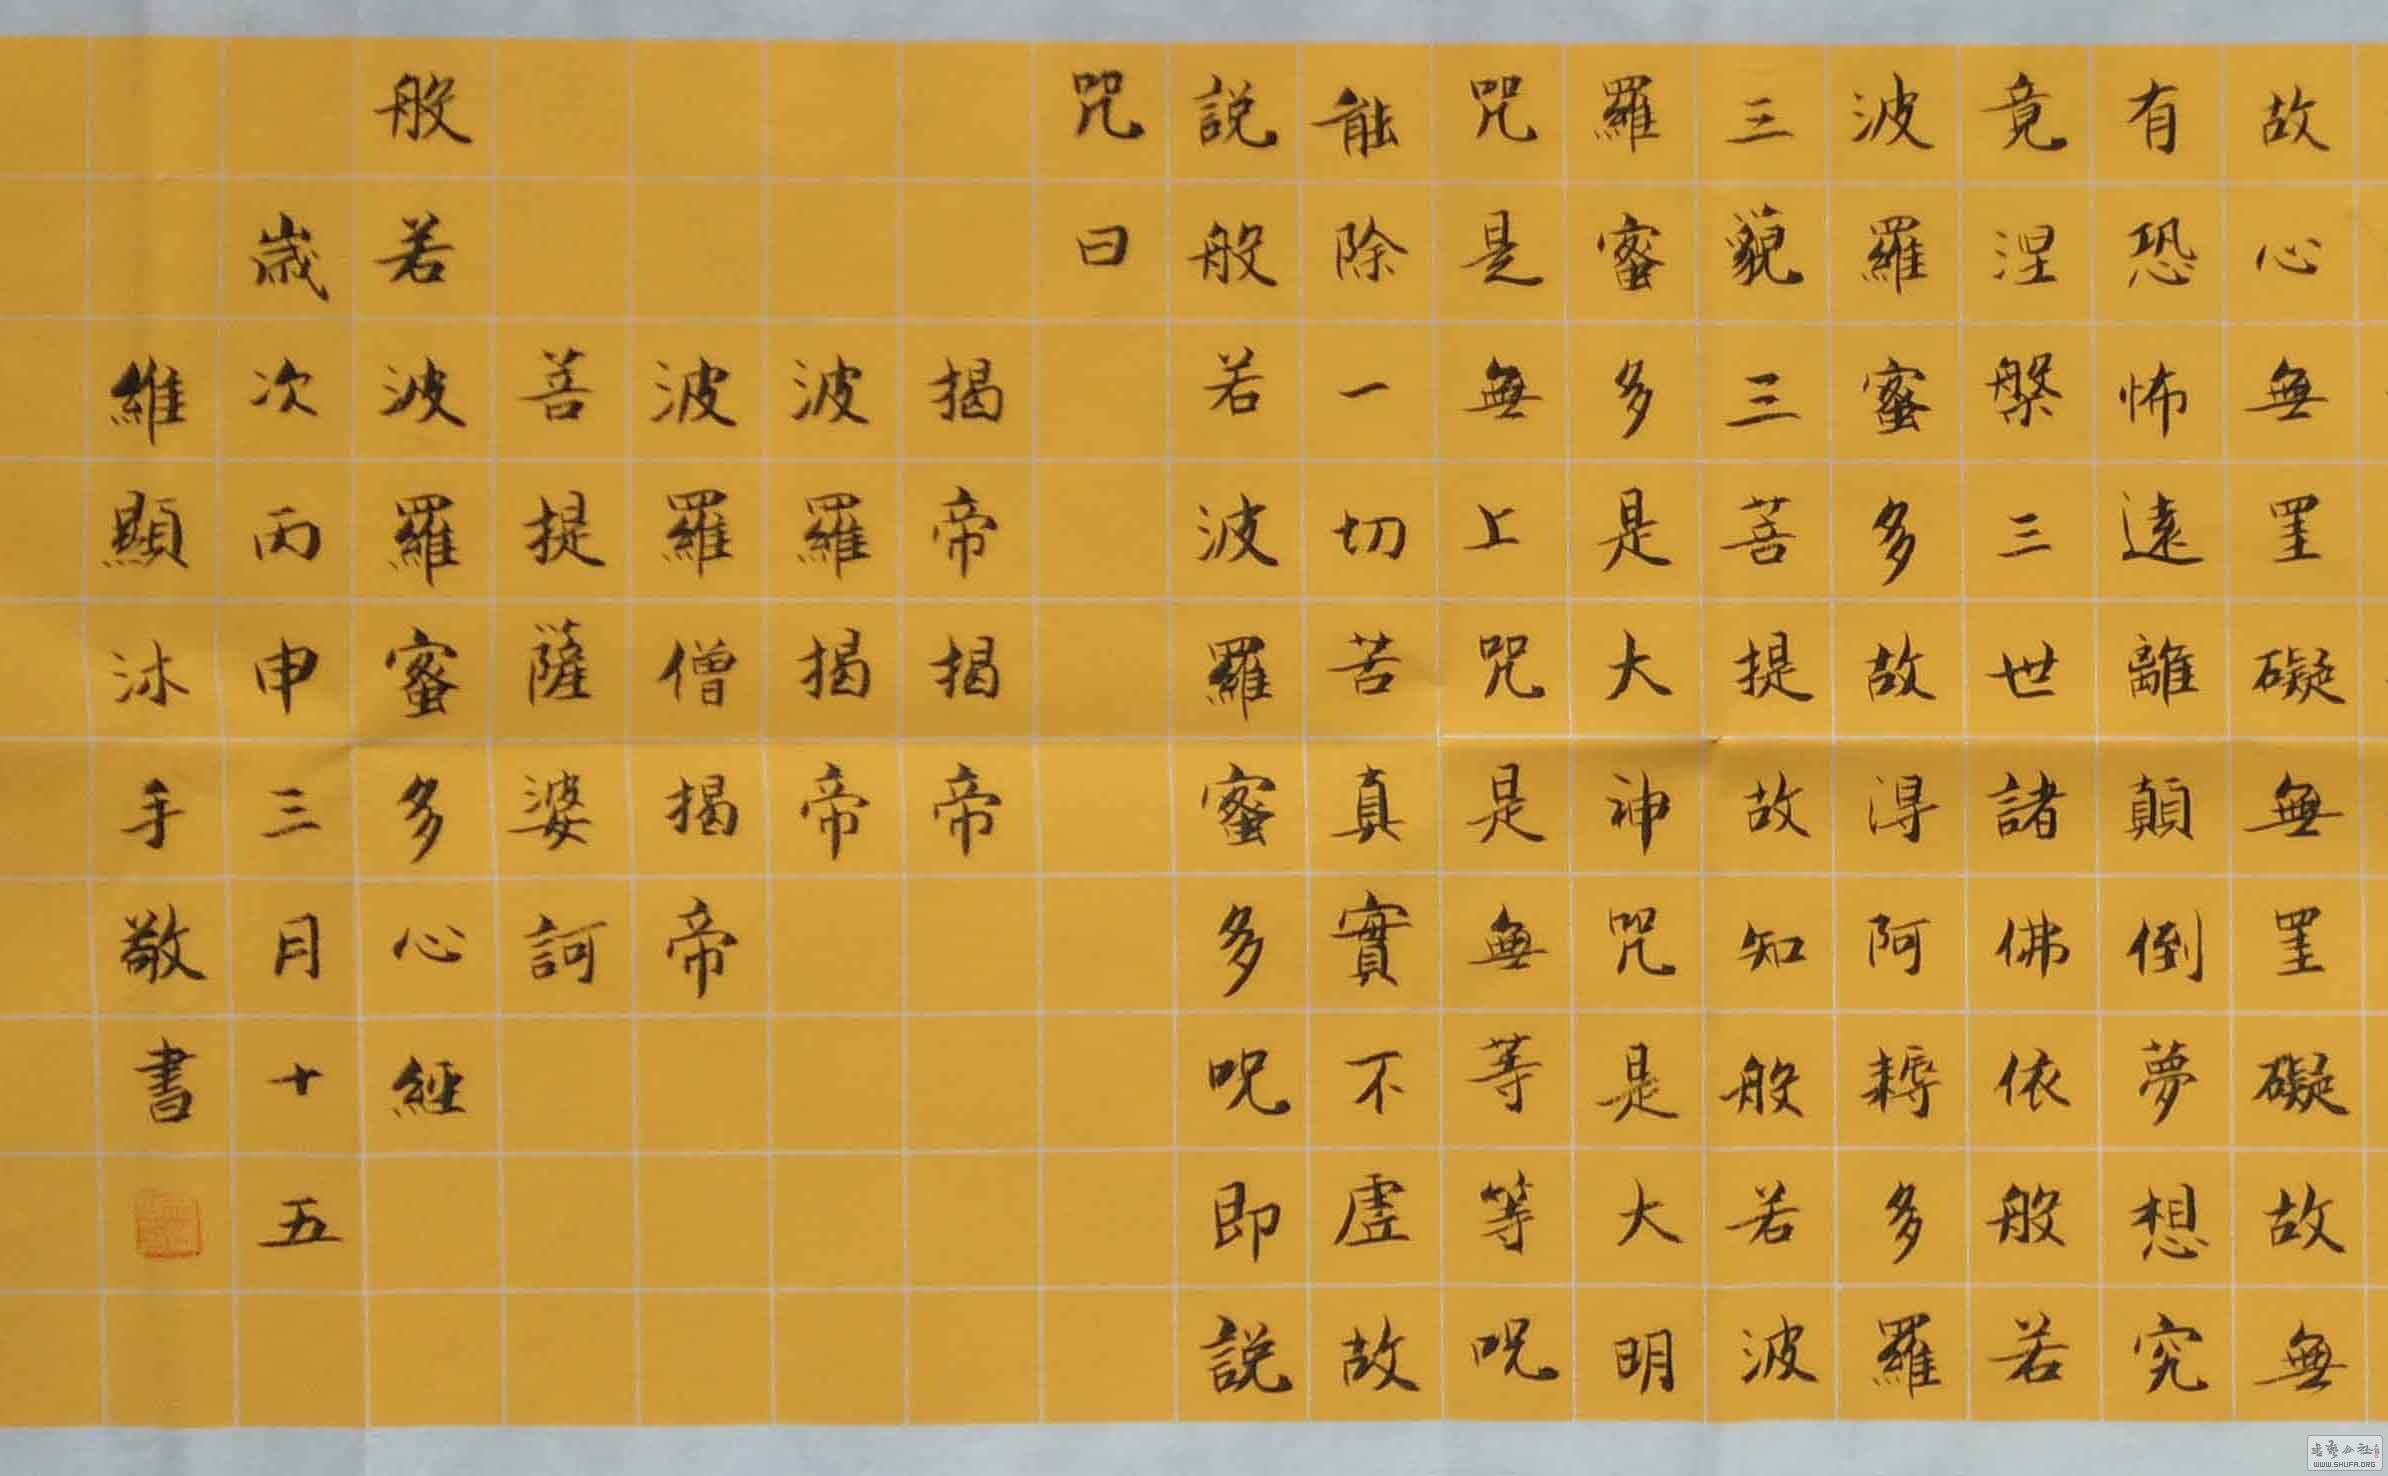 故心無罣礙無罣礙故無
有恐怖遠離顛倒夢想究
竟涅槃三世諸佛依般若
波羅蜜多故得阿耨多羅
三藐三菩提故知般若波
羅蜜多是大神咒是大明
咒是無上咒是無等等呪
能除一切苦真實不虛故
説般若波羅蜜多呪即説
咒曰
揭帝揭帝
波羅揭帝
波羅僧揭帝
菩提薩婆訶
般若波羅蜜多心經
歲次丙申三月十五
維顯沐手敬書
WWW.SHUFA.ORG